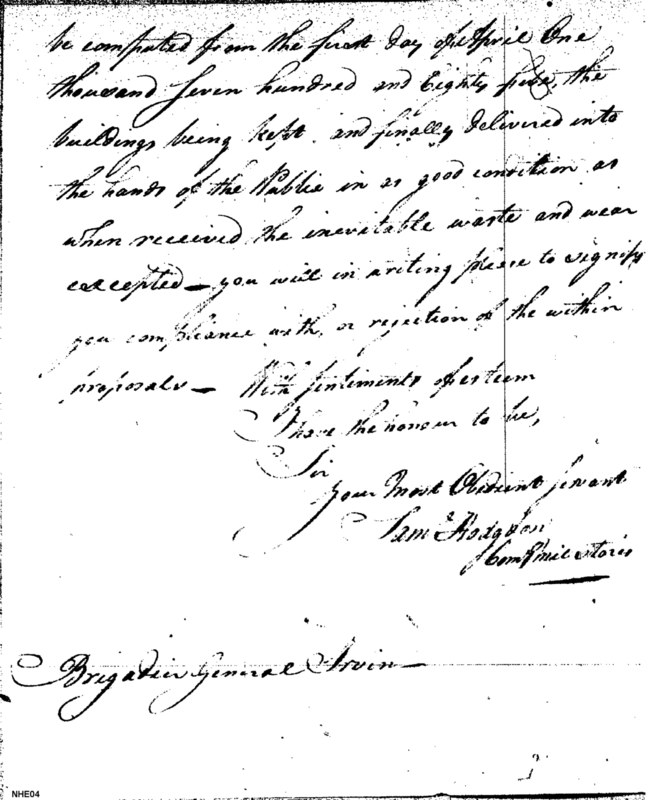 be computed from the first day of April One
thousand seven hundred and Eighty five, the
buildings being kept and finally delivered into
the hands of the Publie in as good condition as
when received the inevitable waste and wear
excepted — you will in writing please to signify
you compliance with, or rejection of the within
proposals — With sentiments of esteem
I have the honour to be,
Sir
your Most Obedient Servant
Sam.l Hodgdon
Com mil Stores
Brigadier General Irvin —
NHE04